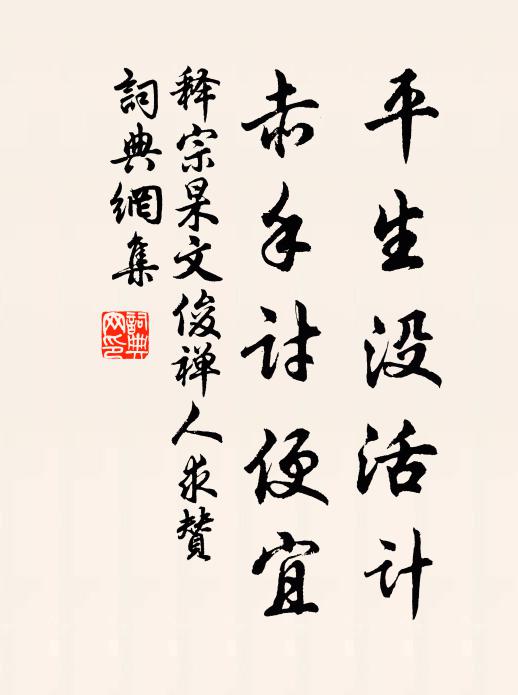 平生没活计
赤手讨便宜
释宗杲文俊禅人求赞
詞典網集
詞典网印